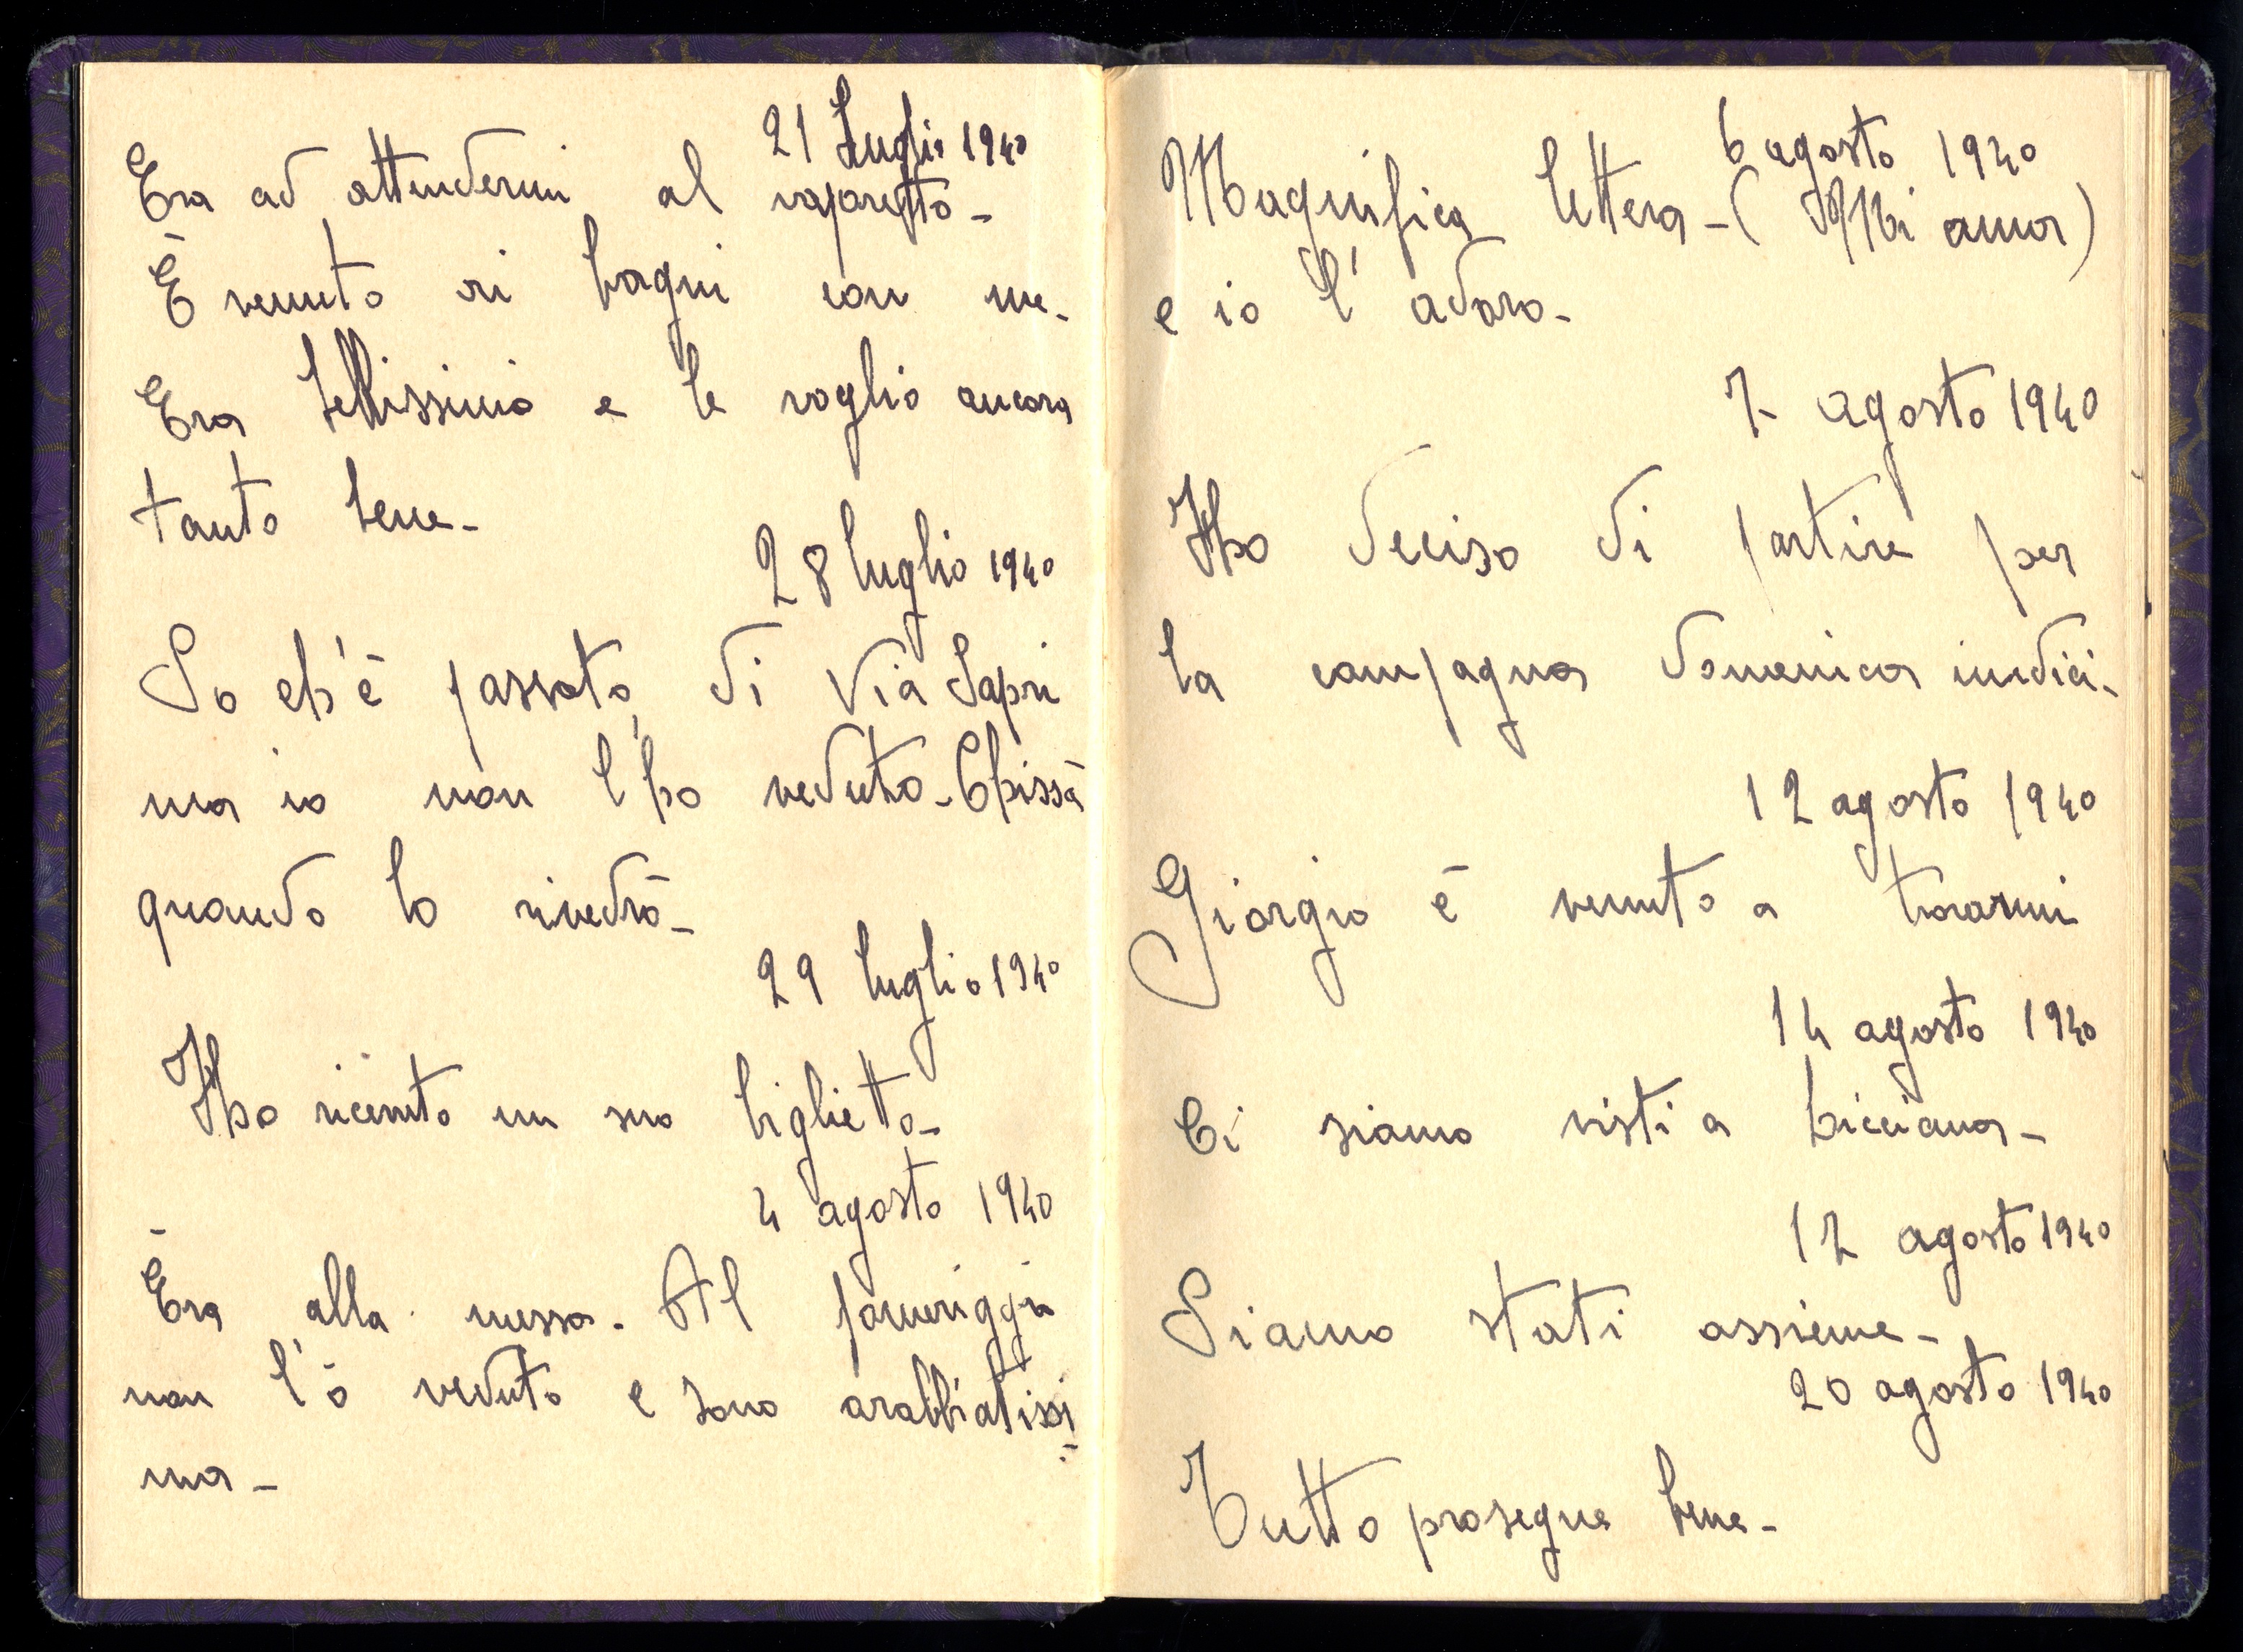 21 Luglio 1940
Era ad attendermi al vaporetto -
È venuto ai bagni con me -
Era bellissimo e le voglio ancora
tanto bene -
28 luglio 1940
So ch'è passato di Via Sapri
ma io non l'ho veduto - Chissà
quando lo rivedrò -
29 luglio 1940
Ho ricevuto un suo biglietto -
4 agosto 1940
Era alla messa. Al pomeriggio
non l'ò veduto e sono arabbiatissi-
ma -
6 agosto 1940
Magnifica lettera - ( Mi ama )
e io l'adoro -
7 agosto 1940
Ho deciso di partire per
la campagna domenica undici -
12 agosto 1940
Giorgio è venuto a trovarmi
14 agosto 1940
Ci siamo visti a
12 agosto 1940
Siamo stati assieme -
20 agosto 1940
Tutto prosegue bene -